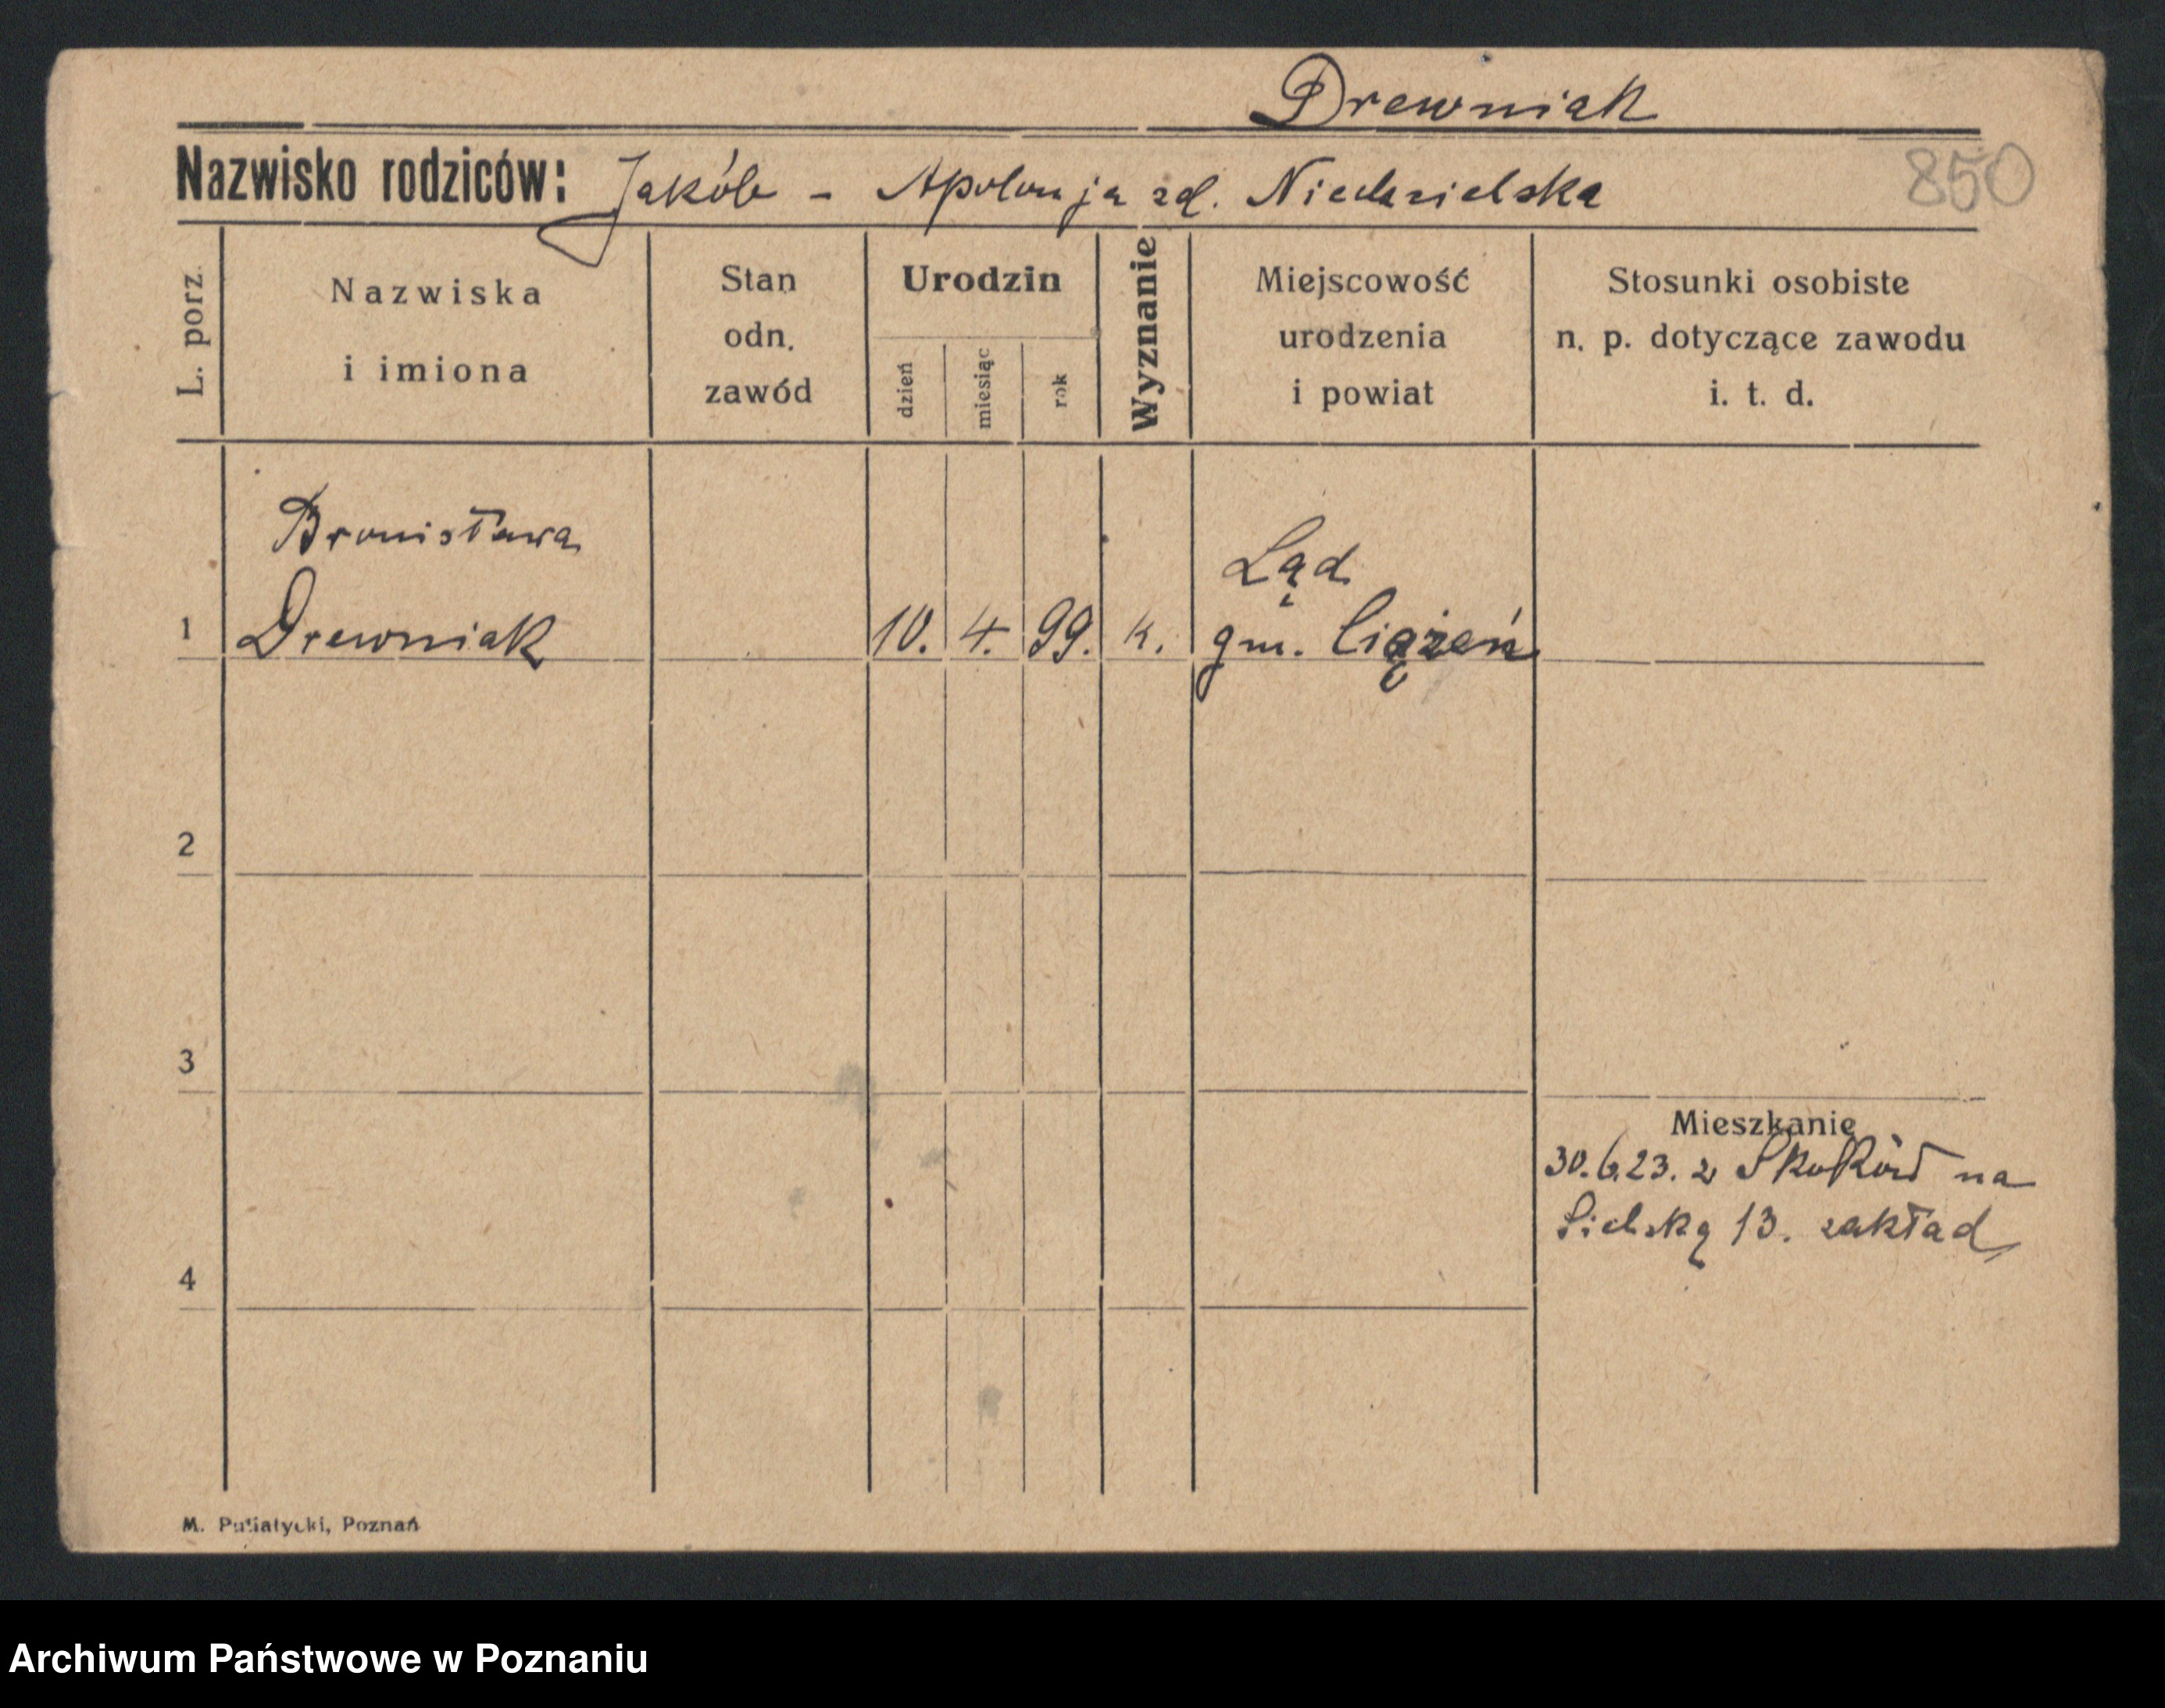 Drewniak
Nazwisko rodziców: Jakób - Apolonja zd. Niedzielska
850
L. porz.
Nazwiska
i imiona
Stan
odn.
zawód
Urodzin
dzień
miesiąc
rok
Wyznanie
Miejscowość
urodzenia
i powiat
Stosunki osobiste
n. p. dotyczące zawodu
i. t. d.
Bronisława
Ląd
1 Drewniak 10. 4. 99. k. gm. Ciążeń
2
3
Mieszkanie
30.6.23. z na
13. zakład
4
M. Putiatycki, Poznań
Archiwum Państwowe w Poznaniu